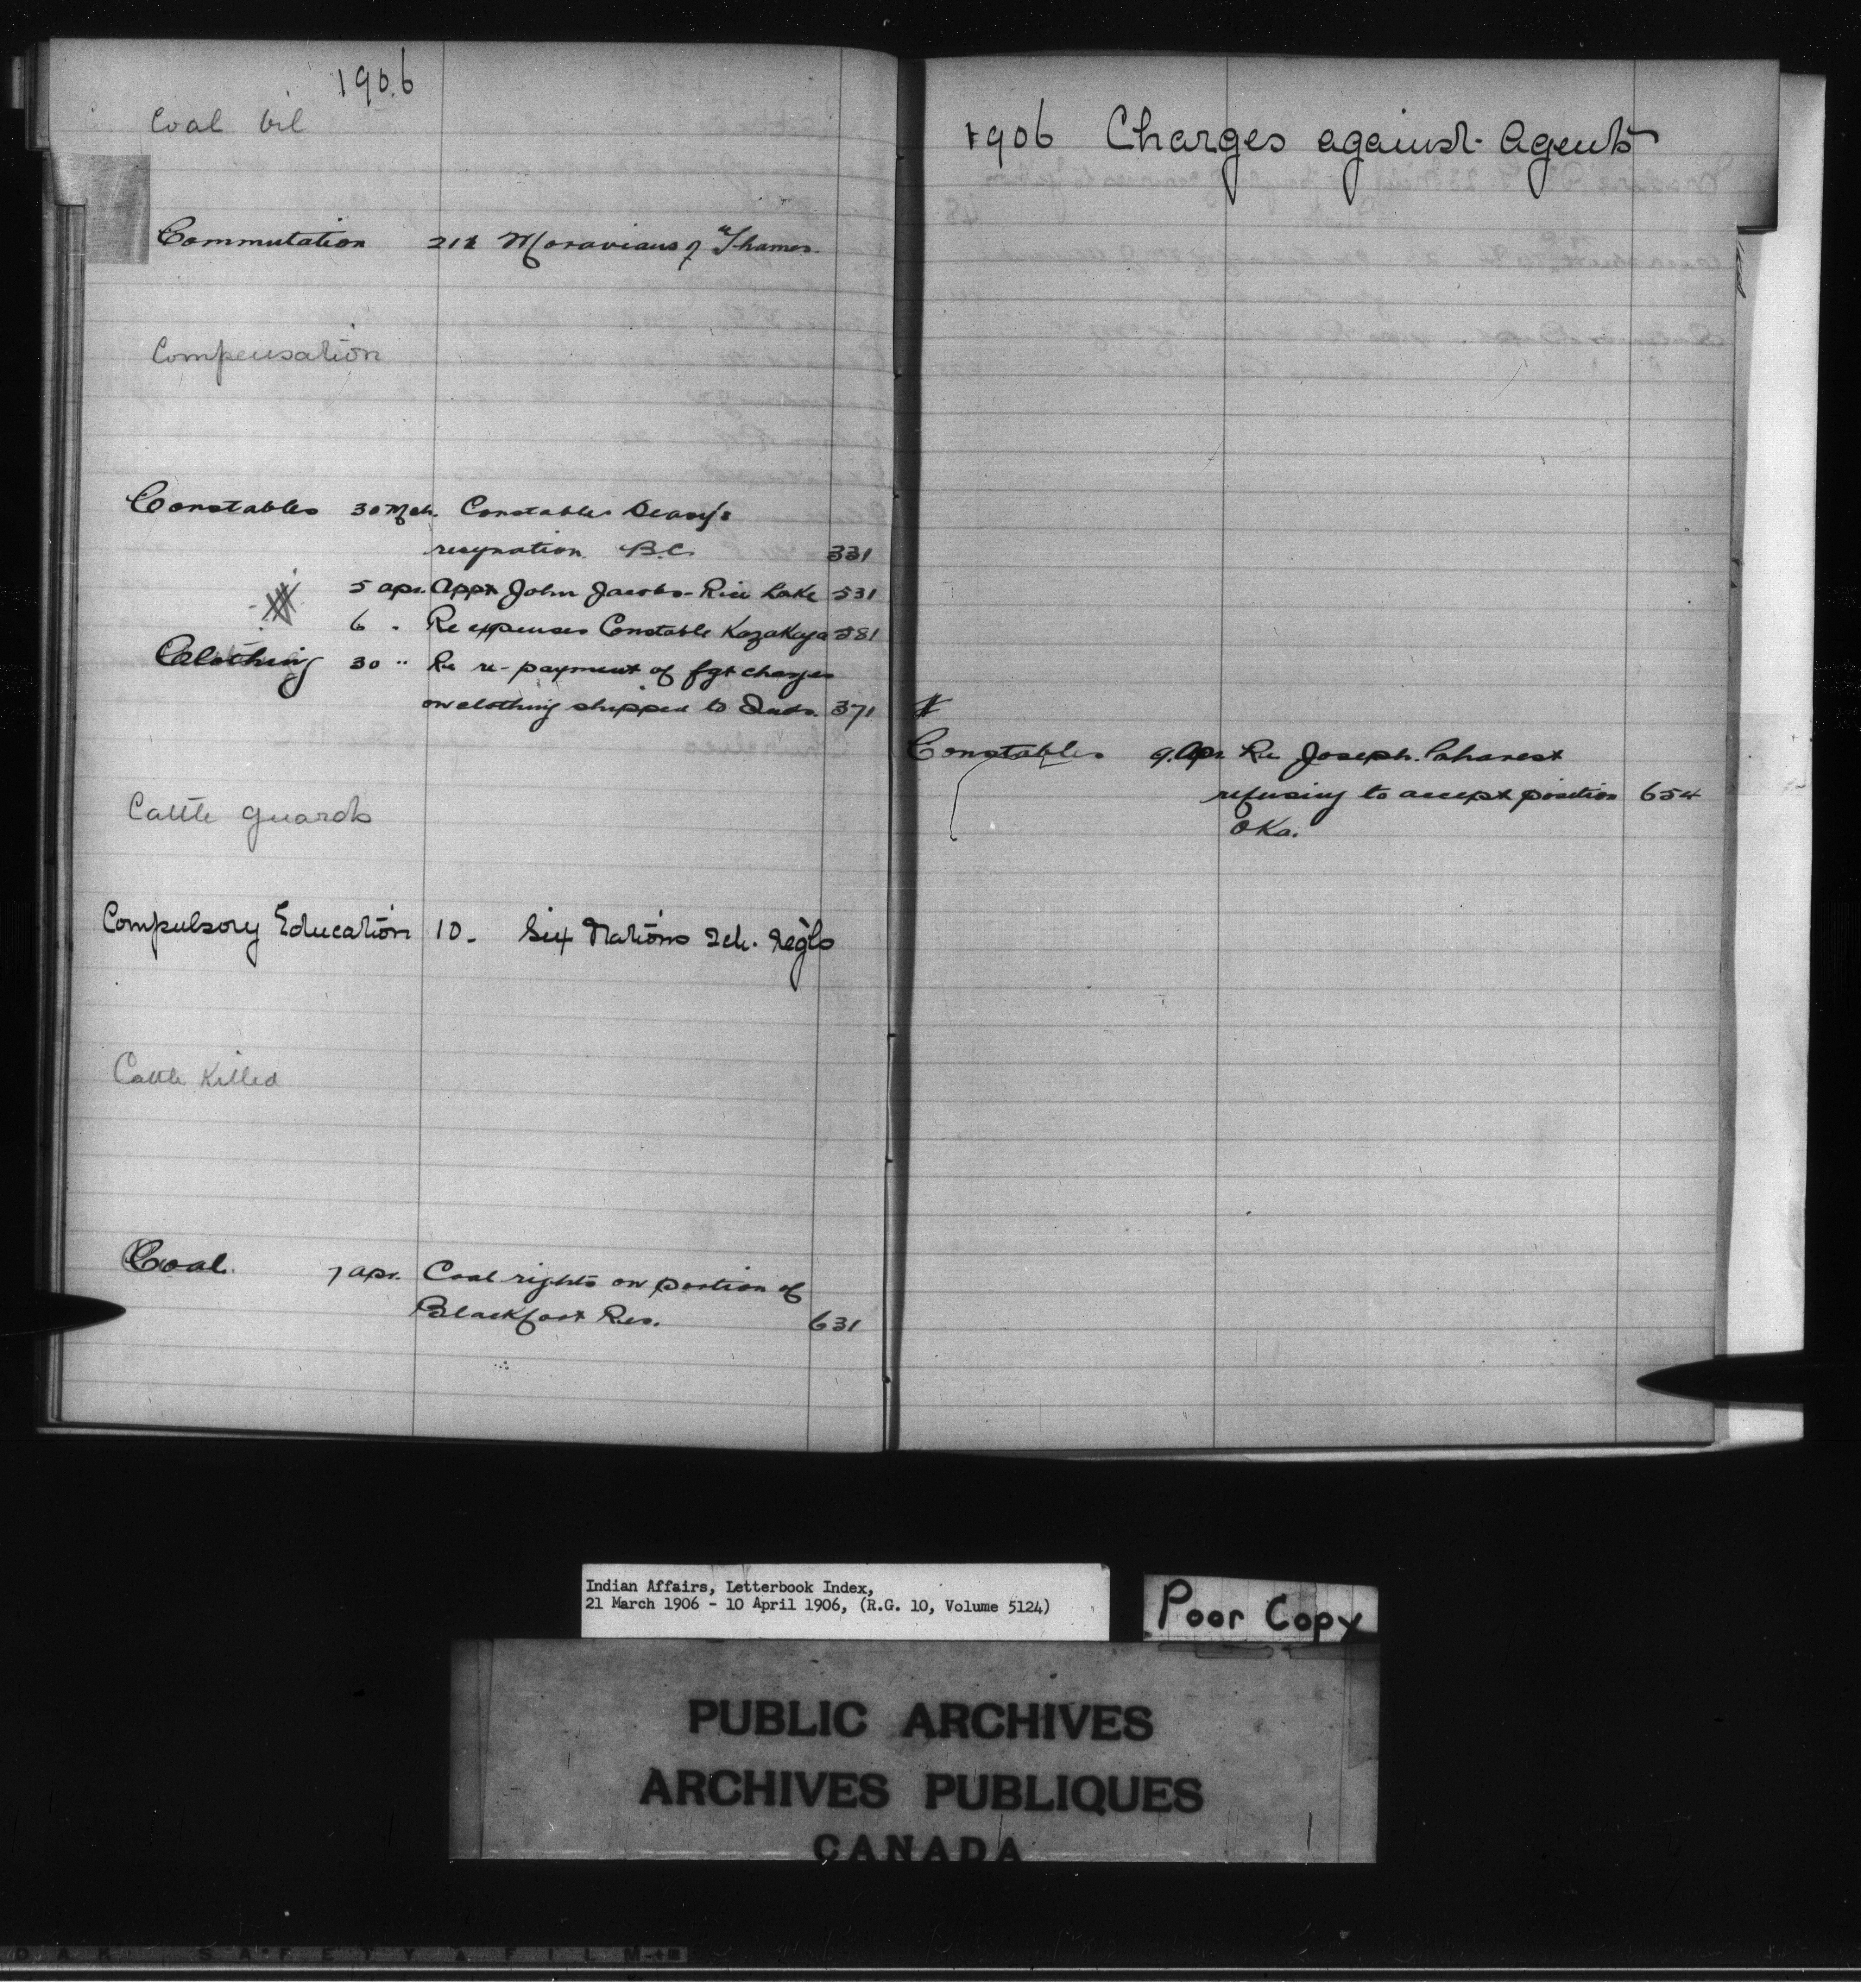 1906
Coal Oil
Commutation 212 Moravians of Thames.
Compensation
Constables 30 Mch. Constables Deasy's
resignation. B.C. 331
5 apr. Appt John Jacobs - Rice Lake 531
6 " Re expenses Constable Kazakaya 581
Clothing 30 " Re re-payment of fgt charges
on clothing shipped to Inds. 371
Cattle guards
Compulsory Education 10. Six Nations Sch. Reg'ls
Cattle Killed
Coal. 7 apr. Coal rights on portion of
Blackfoot Res. 631
1906 Charges against Agents
Constables 9. Apr. Re Joseph
refusing to accept position 654
Oka.
Indian Affairs, Letterbook Index,
21 March 1906 - 10 April 1906, (R.G. 10, Volume 5124)
Poor Copy
PUBLIC ARCHIVES
ARCHIVES PUBLIQUES
CANADA
SAFETY A FILM